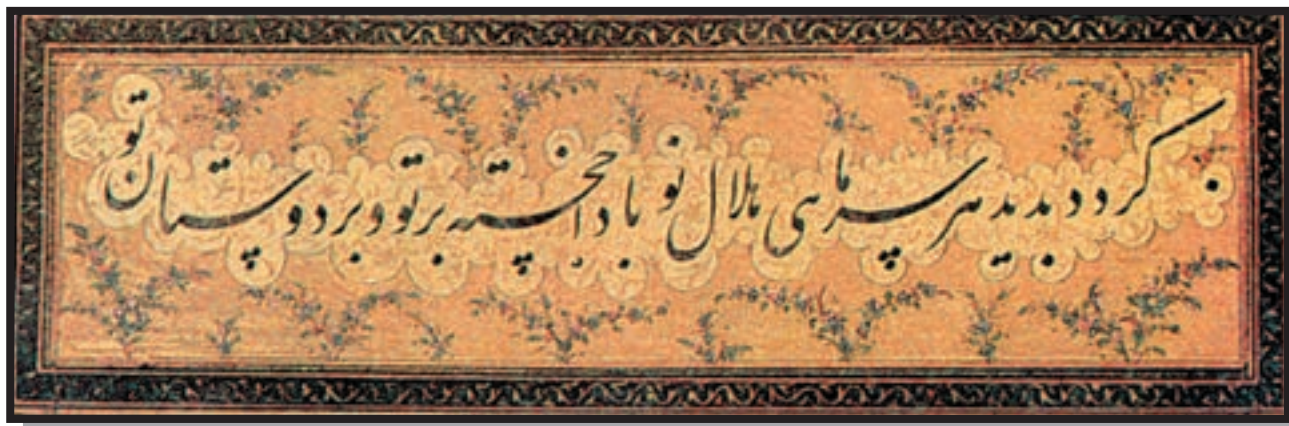 کردد بدید هر سر ماهی هلال نو بادا خجسته بر تو و بر دوستان تو